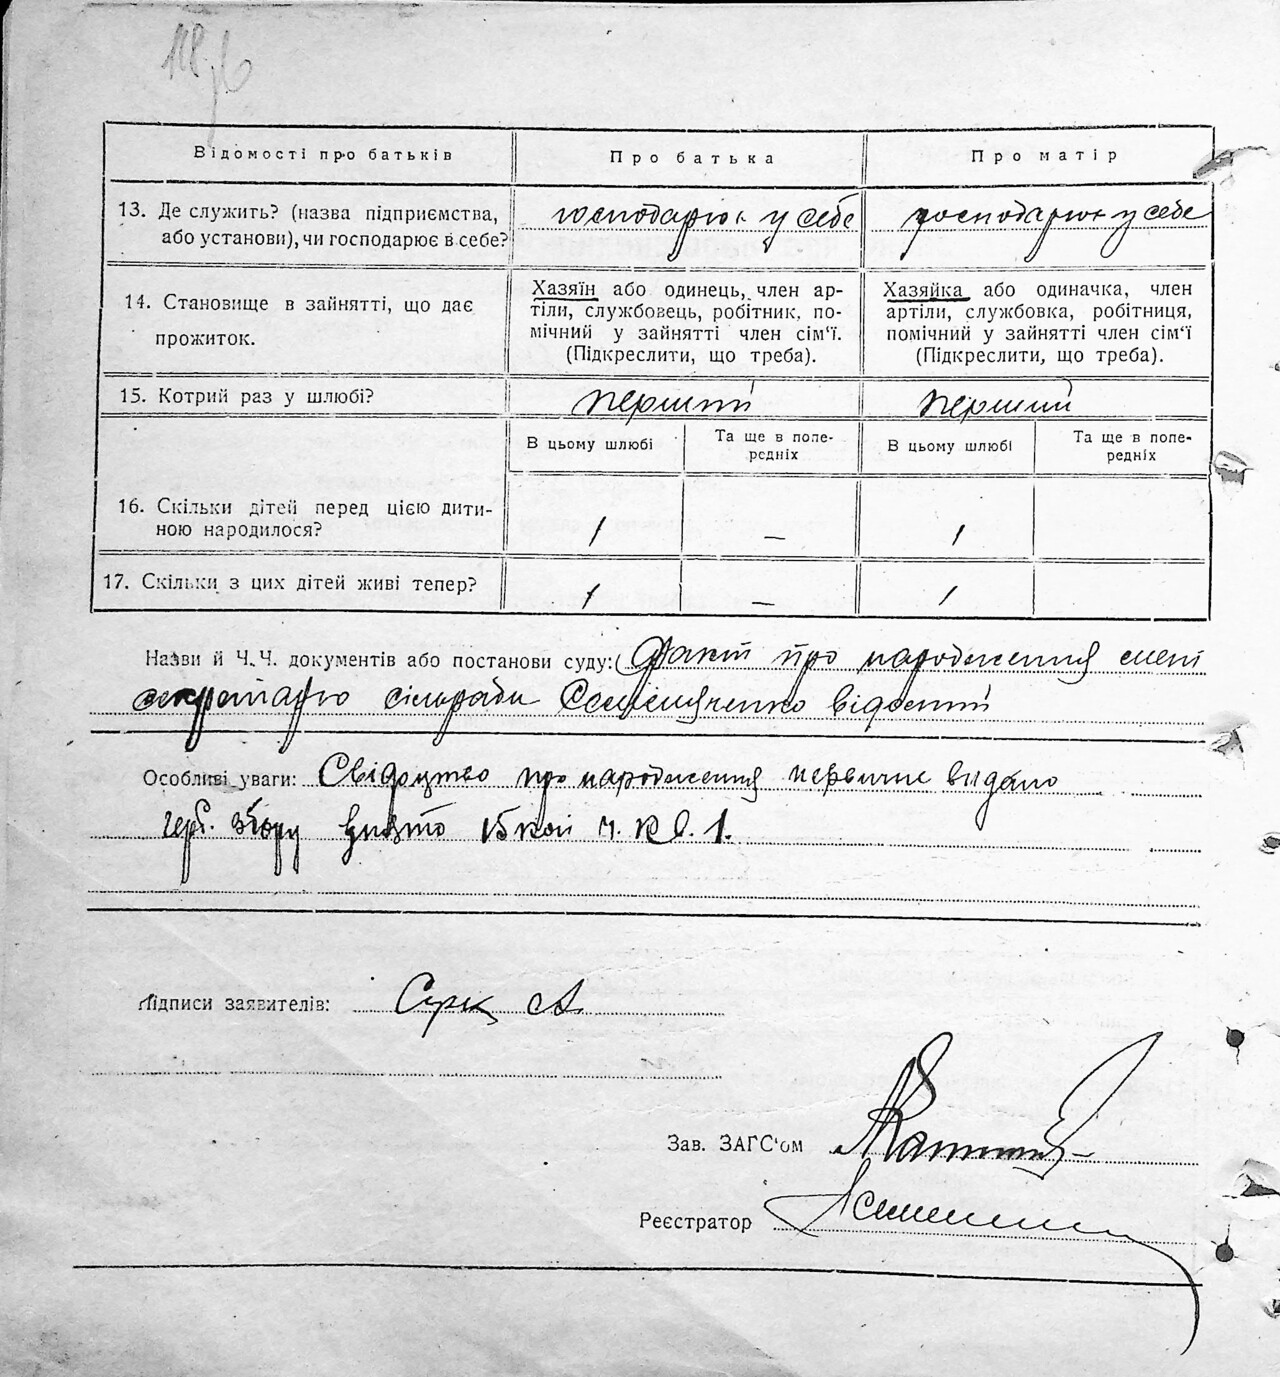 Відомості про батьків
Про батька
Про матір
13. Де служить? (назва підприємства,
або установи), чи господарює в себе?
господарює у себе
господарює у себе
14. Становище в зайнятті, що дає
прожиток.
Хазяїн або одинець, член ар-
тіли, службовець, робітник, по-
мічний у зайнятті член сім'ї.
(Підкреслити, що треба).
Хазяйка або одиначка, член
артіли, службовка, робітниця,
помічний у зайнятті член сім'ї
(Підкреслити, що треба).
15. Котрий раз у шлюбі?
перший
перший
В цьому шлюбі
Та ще в попе-
редніх
В цьому шлюбі
Та ще в попе-
редніх
16. Скільки дітей перед цією дити-
ною народилося?
1
—
1
17. Скільки з цих дітей живі тепер?
1
—
1
Назви й Ч.Ч. документів або постанови суду: Факт про народження мені
секретарю сільради відомий
Особливі уваги: Свідоцтво про народження первичне видано
герб. збору 15 коп
Підписи заявителів: Сірк А.
Зав. ЗАГС'ом
Реєстратор